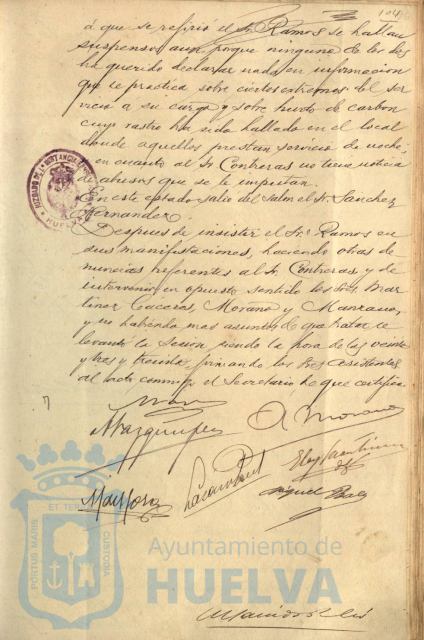 104
á que se refirió el Sr. Ramos se hallan
suspensos aun porque ninguno de los dos
ha querido declarar nada en informacion
que se practica sobre ciertos extremos del ser
vicio a su cargo y sobre hurto de carbon
cuyo rastro ha sido hallado en el local
donde aquellos prestan servicio de noche;
en cuanto al Sr. Contreras no tiene noticia
de abusos que se le imputan.
En este estado salio del salon el Sr. Sanchez
Hernandez.
Despues de insistir el Sr. Ramos en
sus manifestaciones, haciendo otras de
nuncias referentes al Sr. Contreras, y de
intervenir en opuesto sentido los Sres. Mar
tinez Cáceres, Morano y Manzano,
y no habiendo mas asuntos de que tratar se
levantó la sesion siendo la hora de las veinte
y tres y treinta, firmando los Sres. asistentes
al acto conmigo el Secretario, de que certifico.
A Morano
JUZGADO DE 1ª INSTANCIA
HUELVA
PORTUS MARIS
ET TERRÆ
CUSTODIA
Ayuntamiento de
HUELVA